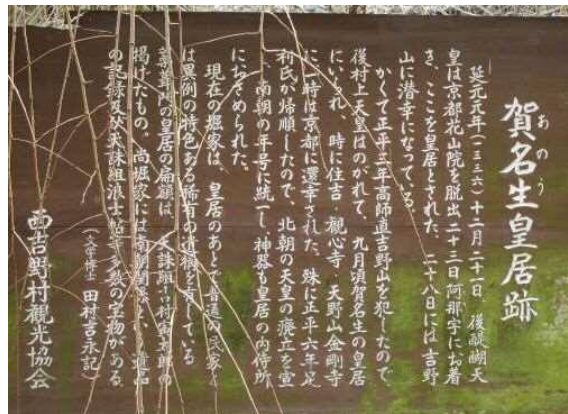 賀名生皇居跡
あのう
延元元年(一三三六)十二月二十一日、後醍醐天
皇は京都花山院を脱出二十三日阿那宇にお着
き、ここを皇居とされた。二十八日には吉野
山に潜幸になっている。
かくて正平三年高師直吉野山を犯したので、
後村上天皇はのがれて、九月頃賀名生の皇居
にいられ、時に住吉、観心寺、天野山金剛寺
に一時は京都に還幸された。殊に正平六年足
利氏が帰順したので、北朝の天皇の廃立を宣
し、南朝の年号に統一し、神器も皇居の内侍所
におさめられた。
現在の堀家は、皇居のあとで普通の民家と
は異例の特色ある稀有の遺構を有している
の皇居の扁額は、天誅組吉村
掲げたもの。尚堀家には南朝関係の遺品
の記録及び天誅組浪士帖等多数の宝物がある。
(文学博士) 田村吉永記
西吉野村観光協会